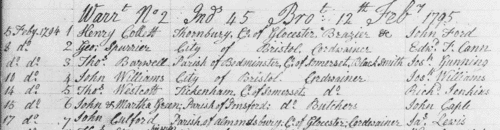 Warrt. No 2 Ind 45 Brot. 12th Feby 1795
5 Feby. 1794 1 Henry Collett Thornbury, C. of Glocester Brazier & John Ford
8 do 2 Geo. Spurrier City of Bristol Cordwainer Edwd. J. Cann
do do 3 Thos. Barwell Parish of Bedminster, C. of Somerset, Black Smith Jos. Gunning
10 do 4 John Williams City of Bristol Cordwainer Jos. Williams
14 do 5 Thos. Westcott Tickenham, C. of Somerset do Richd. Jenkins
15 do 6 John & Martha Green, Parish of do Butchers John Cape
17 do 7 John Parish of Almondsbury, C. of Glocester, Cordwainer Jas. Lewis